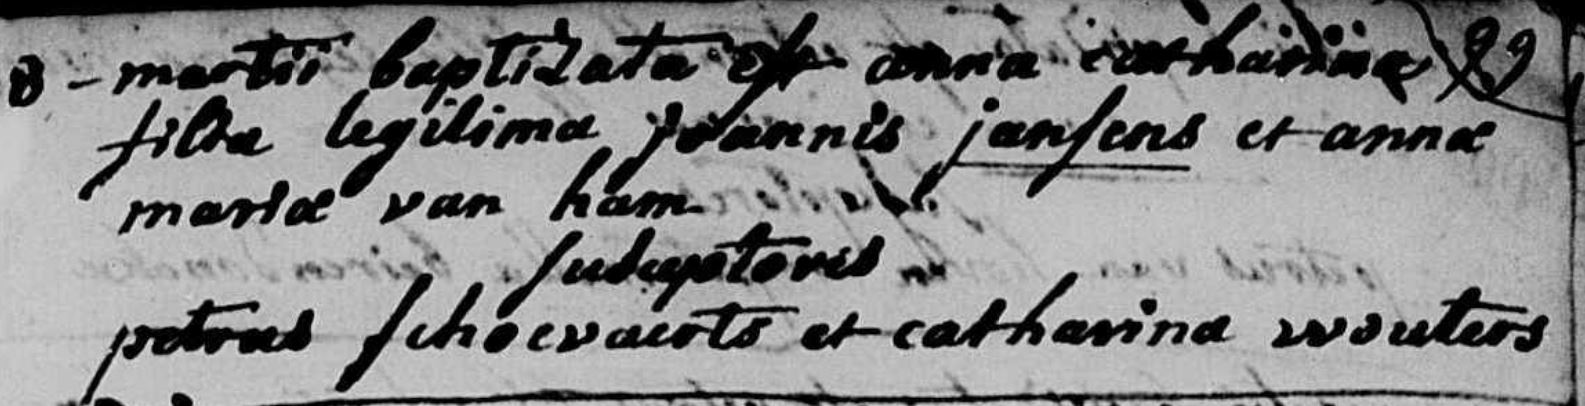 8 - martii baptizata est anna catharina 99
filia legitima joannis jansens et annæ
mariæ van ham
susceptores
petrus schoevaerts et catharina wouters